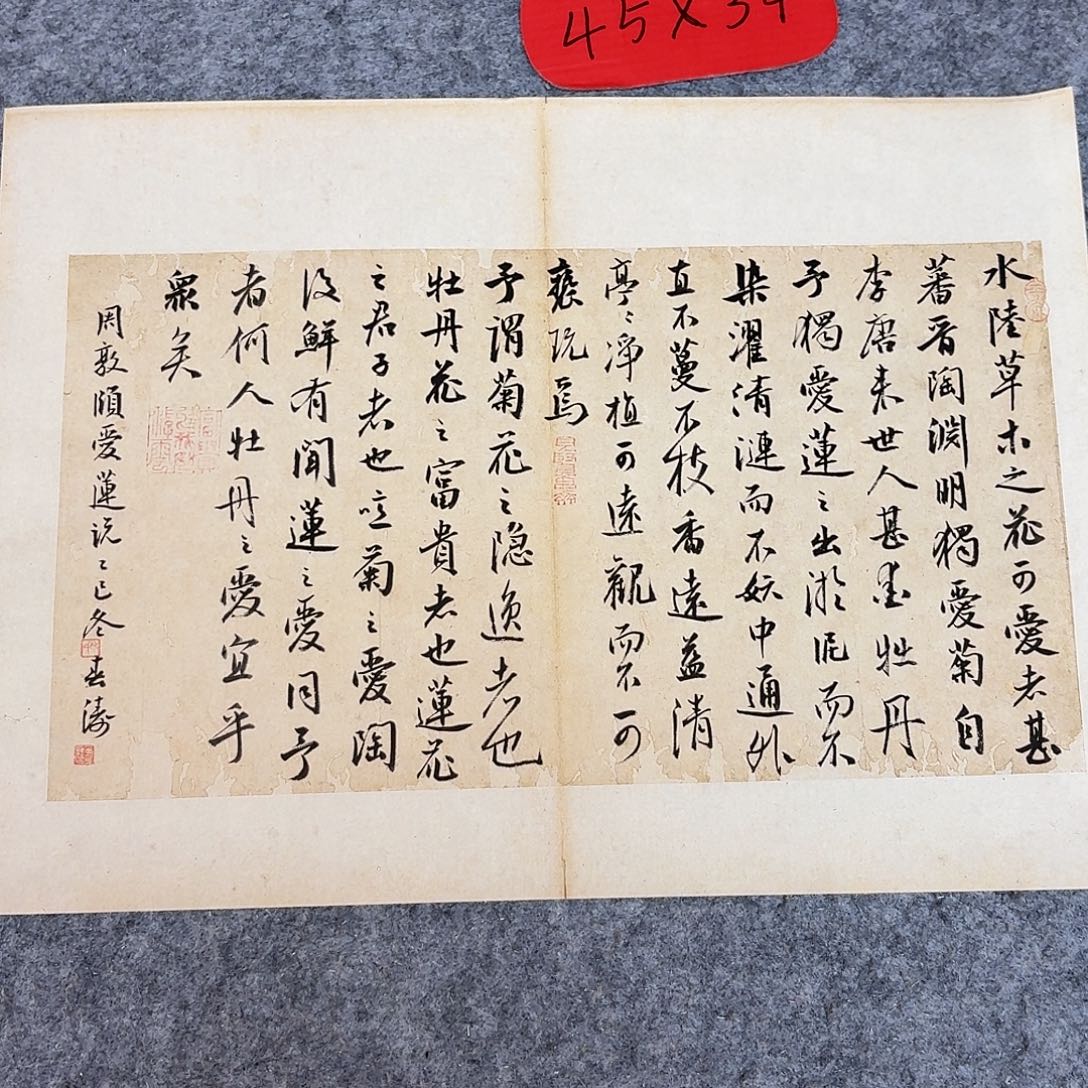 45×39
水陸草木之花可愛者甚
蕃晋陶淵明獨愛菊自
李唐来世人甚愛牡丹
予獨愛蓮之出淤泥而不
染濯清漣而不妖中通外
直不蔓不枝香遠益清
亭〻淨植可遠觀而不可
褻玩焉
予謂菊花之隐逸者也
牡丹花之富貴者也蓮花
之君子者也噫菊之愛陶
後鮮有聞蓮之愛同予
者何人牡丹之愛宜乎
衆矣
周敦頤愛蓮说乙巳冬春濤